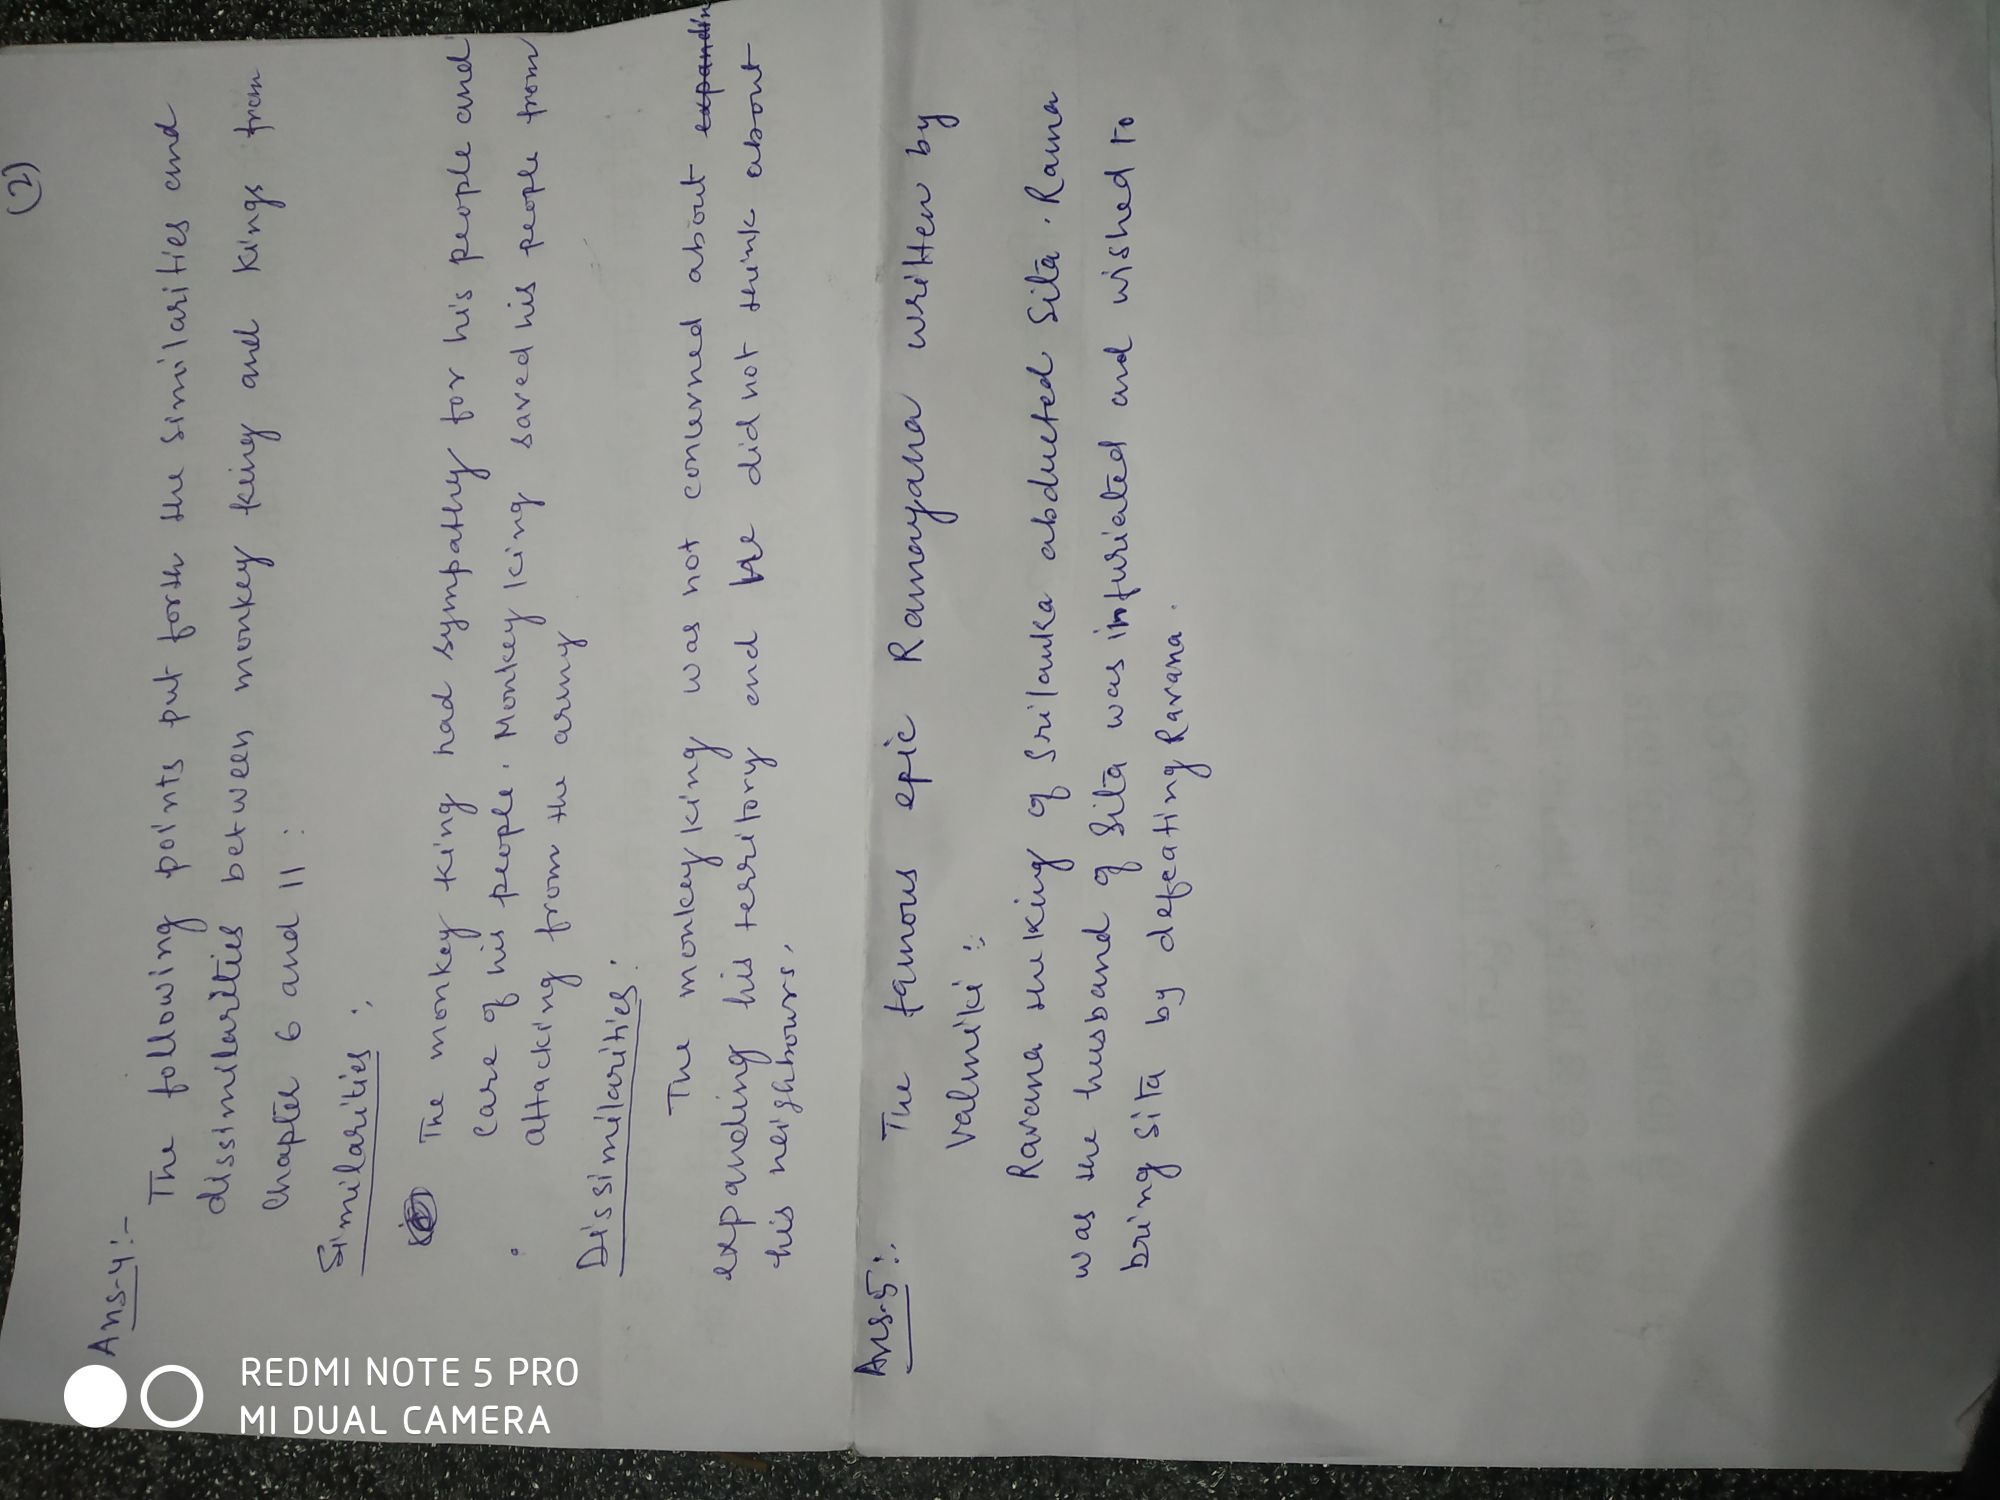 (2)
Ans-4:-
The following points put forth the similarities and
dissimilarities between monkey king and kings from
Chapter 6 and 11 :
Similarities :
The monkey king had sympathy for his people and
care of his people. Monkey king saved his people from
attacking from the army
Dissimilarities :
The monkey king was not concerned about expandin
expanding his territory and he did not think about
his neighbours.
Ans-5:-
The famous epic Ramayana written by
Valmiki :
Ravana the king of Srilanka abducted Sita. Rama
was the husband of Sita was infuriated and wished to
bring Sita by defeating Ravana.
REDMI NOTE 5 PRO
MI DUAL CAMERA